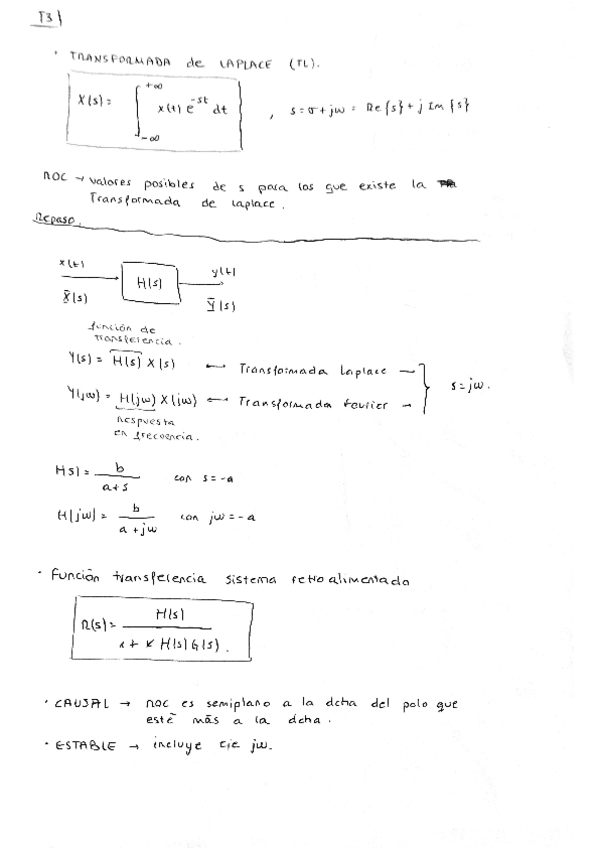 T3
· TRANSFORMADA de LAPLACE (TL).
X(s) = ∫_{-∞}^{+∞} x(t) e^{-st} dt , s = σ + jω = Re{s} + j Im{s}
ROC → valores posibles de s para los que existe la
Transformada de Laplace.
Repaso.
x(t) H(s) y(t)
X(s) Y(s)
función de
transferencia.
Y(s) = H(s) X(s) ← Transformada Laplace
Y(jω) = H(jω) X(jω) ← Transformada Fourier
s = jω.
Respuesta
en frecuencia.
H(s) = b / (a + s) con s = -a
H(jω) = b / (a + jω) con jω = -a
· Función transferencia sistema retroalimentado
R(s) = H(s) / (1 + K H(s) G(s)).
· CAUSAL → ROC es semiplano a la dcha del polo que
esté más a la dcha.
· ESTABLE → incluye eje jω.